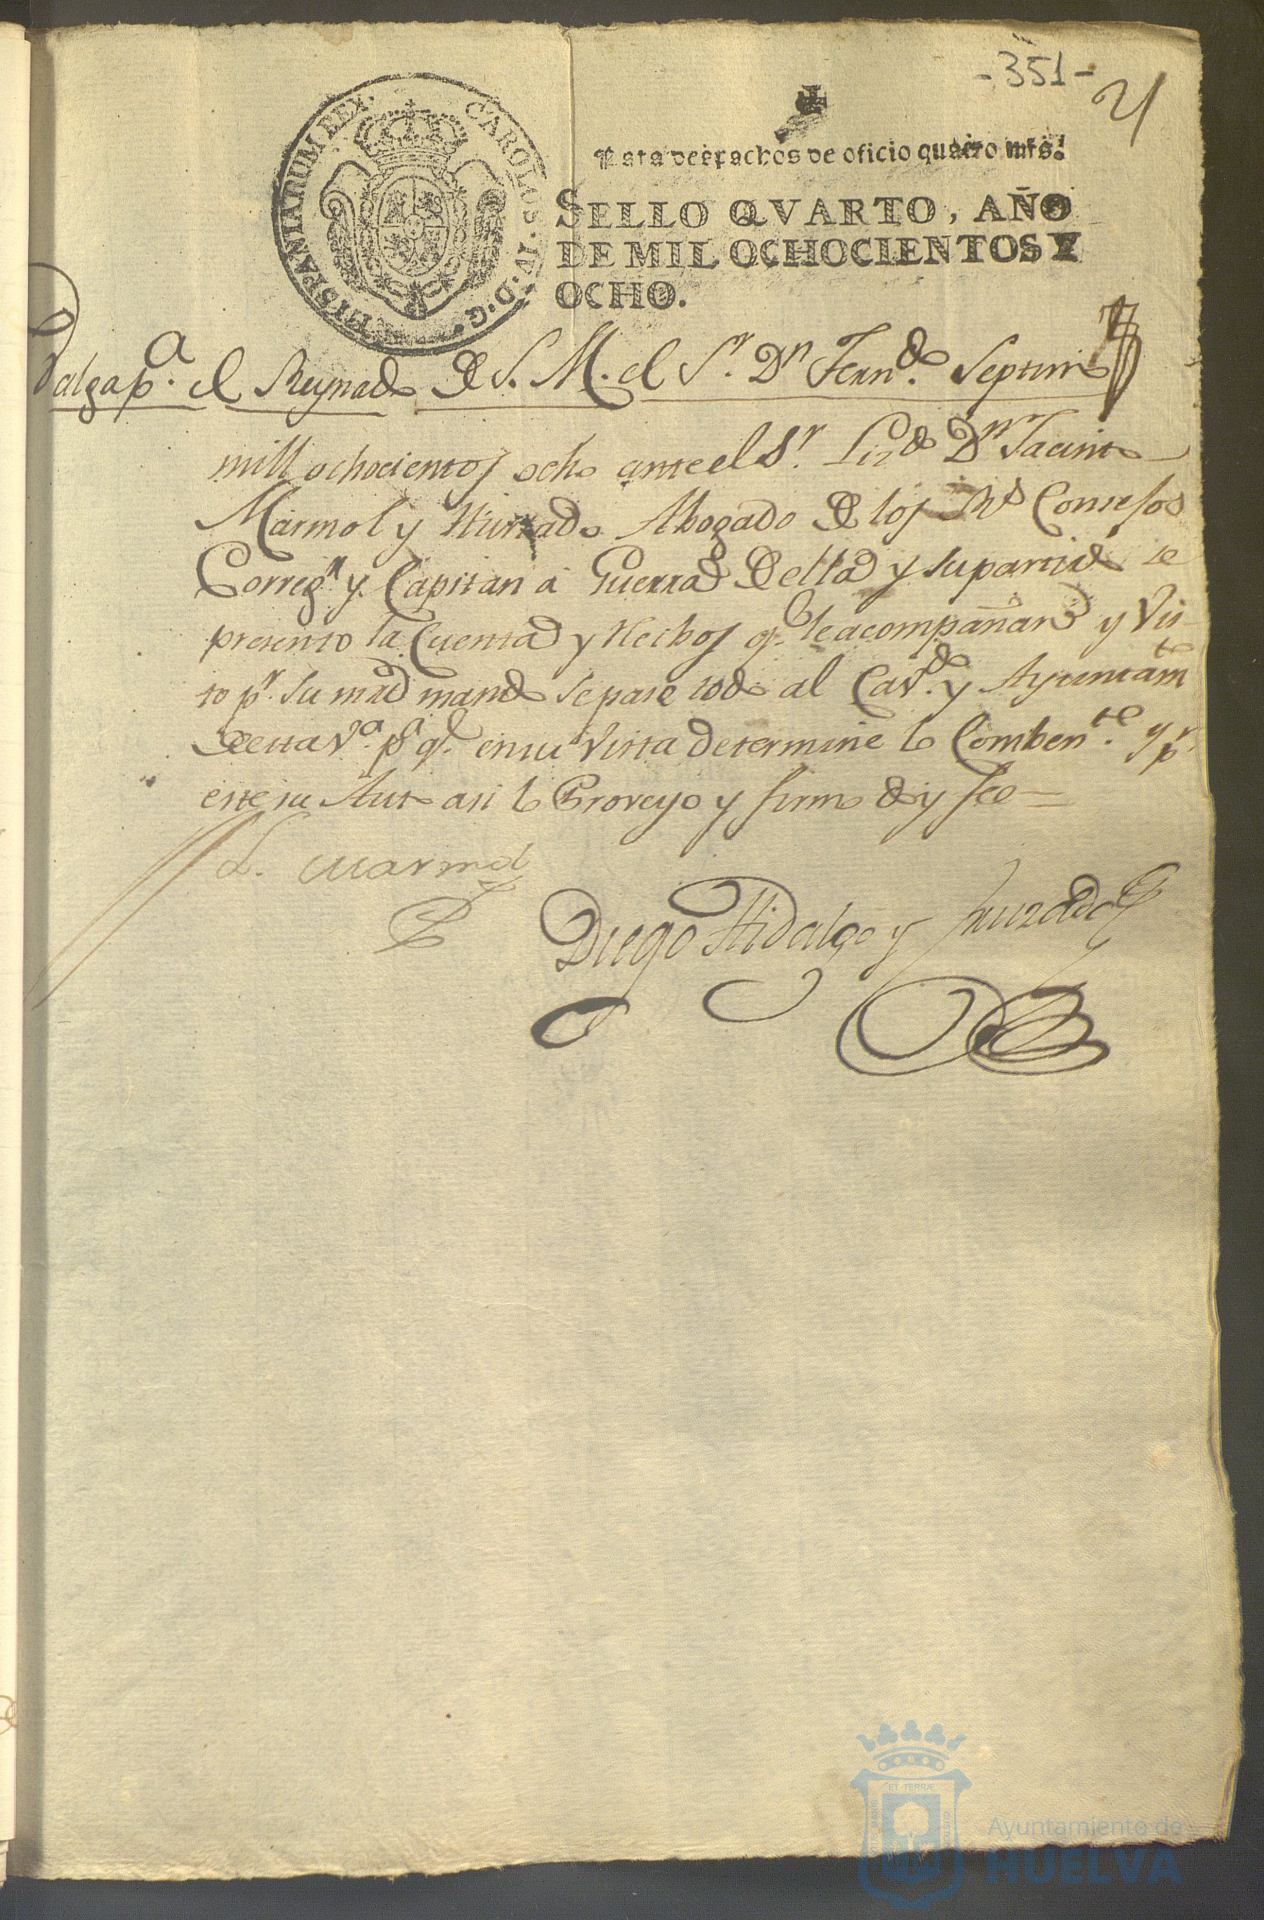 -351-
HISPANIARUM REX. CAROLOS. IV. D. G.
Para despachos de oficio quatro mrs.
SELLO QVARTO, AÑO
DE MIL OCHOCIENTOS Y
OCHO.
Valga p.ª el Reynado de S. M. el S.r D.n Fern.do Septimo
mill ochocientos ocho ante el S.r Liz.do D.n Jacinto
Marmol y Hurtado Abogado de los R.s Consejos
Correg.r y Capitan a Guerra de ella y su partido se
presento la Cuenta y Recibos q.e le acompañan y Vis-
to p.r su mrd mando se pase todo al Cav.do y Ayuntam.to
de esta V.ª p.ª q.e en su Vista determine lo Comben.te y p.r
este su Auto asi lo Proveyo y firmo doy fee =
L. Marmol
Diego Hidalgo y
Ayuntamiento de
HUELVA